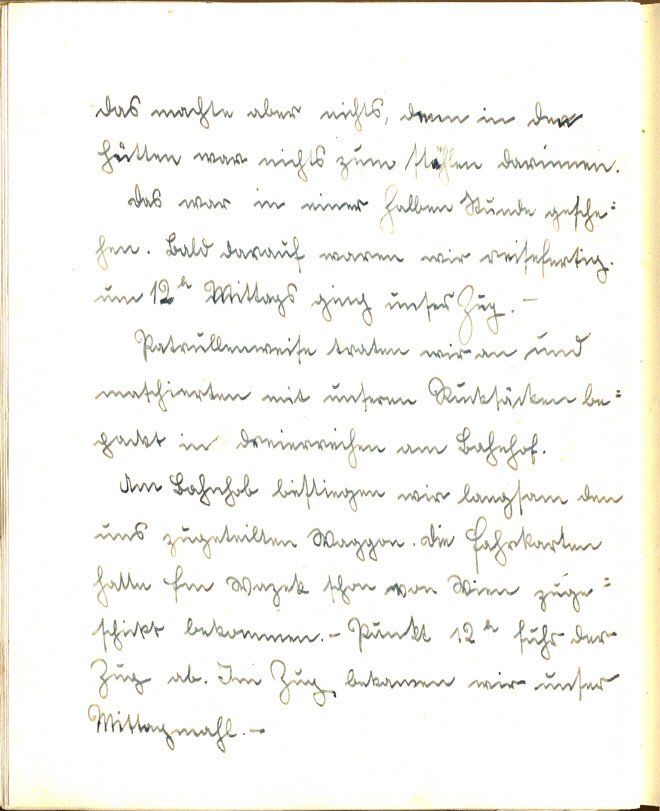 das machte aber nichts, denn in den
Hütten war nichts zum stählen darinnen.
Das war in einer halben Stunde gesche=
hen. Bald darauf waren wir reisefertig.
um 12 h Mittags ging unser Zug. –
Patrullenweise traten wir an und
maschierten mit unseren Rucksäcken be=
packt in dreierreihen am Bahnhof.
Am Bahnhob bestiegen wir langsam den
uns zugeteilten Waggon. Die Fahrkarten
hatte Fm Wazek schon von Wien zuge=
schickt bekommen. – Punkt 12 h fuhr der
Zug ab. Im Zug, bekamen wir unser
Mittagmahl. –